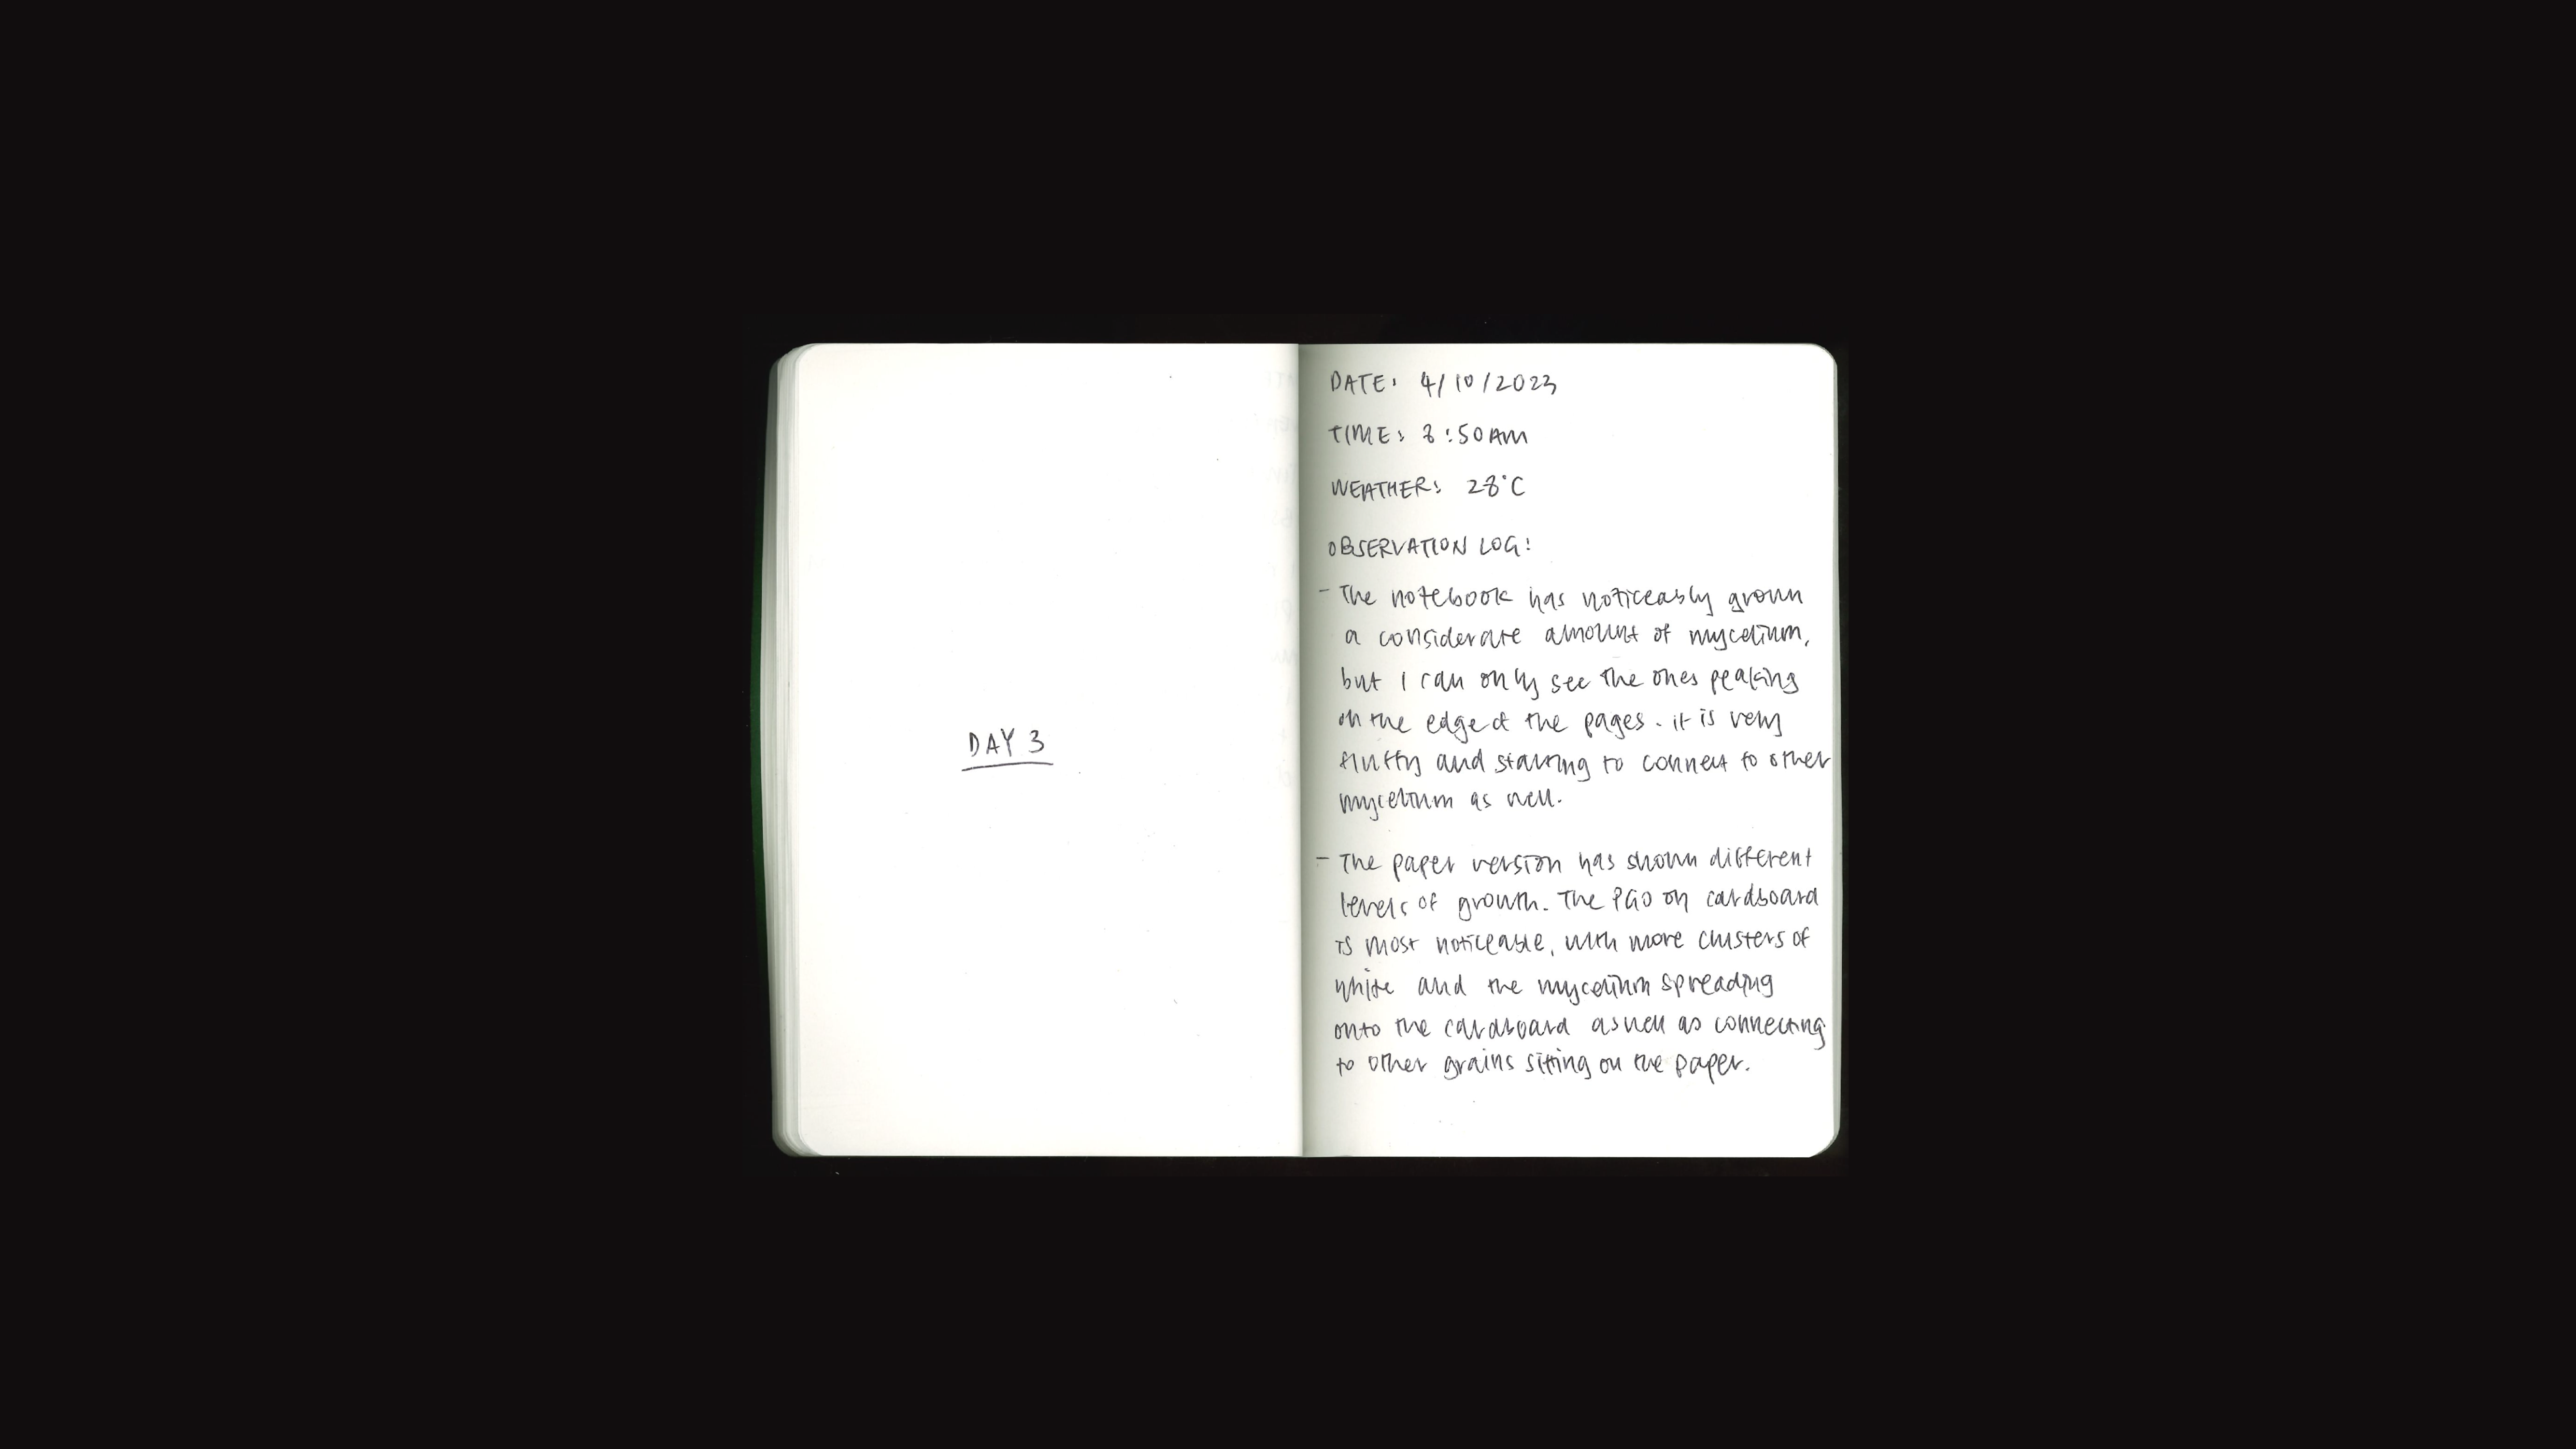 DAY 3
DATE: 4/10/2023
TIME: 8:50AM
WEATHER: 28°C
OBSERVATION LOG:
- The notebook has noticeably grown
a considerate amount of mycelium,
but I can only see the ones peaking
on the edge of the pages. it is very
fluffy and starting to connect to other
mycelium as well.
- The paper version has shown different
levels of growth. The PGO on cardboard
is most noticeable, with more clusters of
white and the mycelium spreading
onto the cardboard as well as connecting
to other grains sitting on the paper.